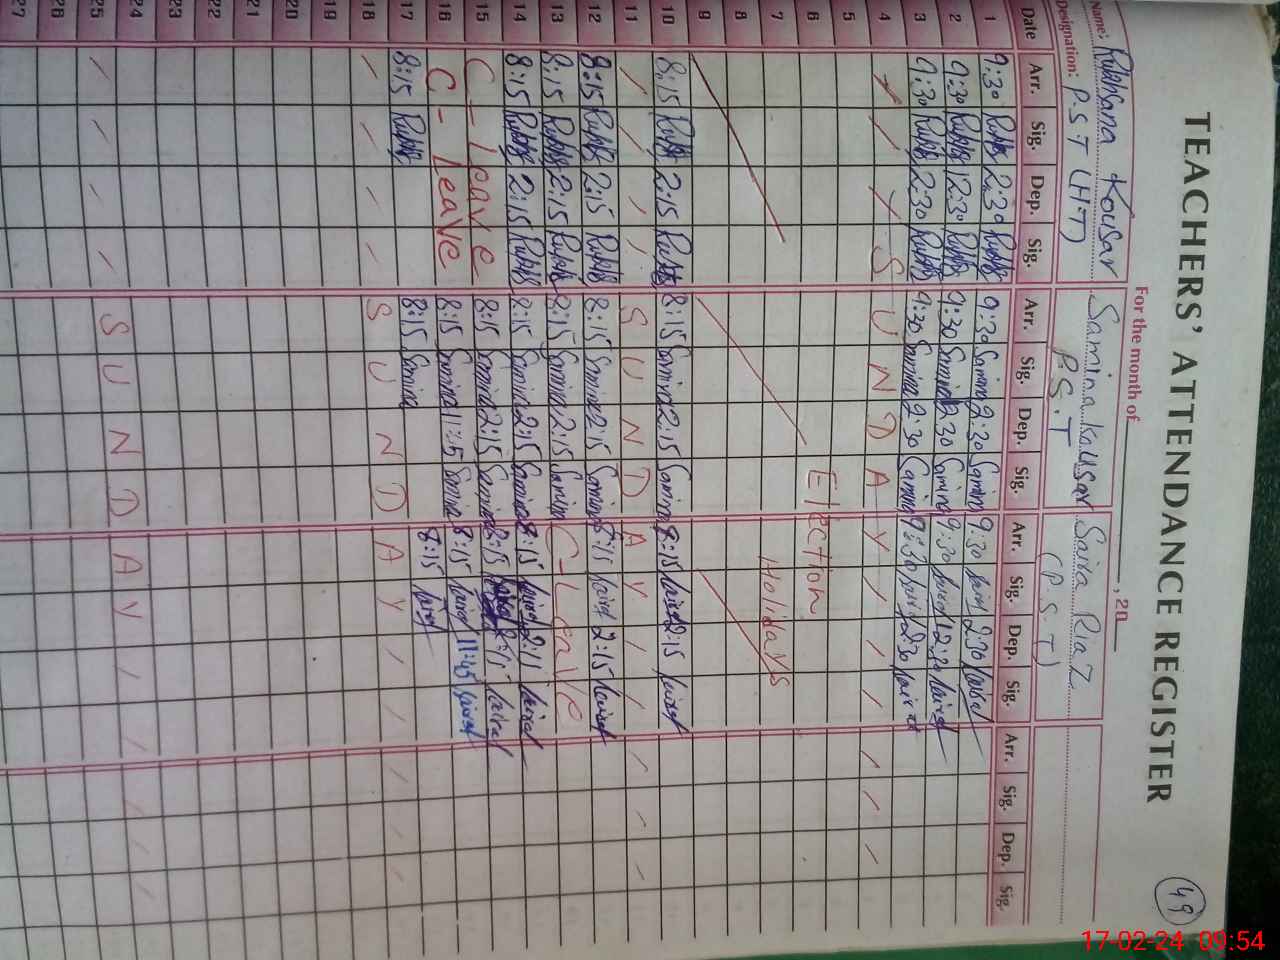 TEACHERS' ATTENDANCE REGISTER
49
For the month of , 20
Name: Rukhsana Kousar Samina Kausar Saira Riaz
Designation: P.S.T (H.T) P.S.T (P.S.T)
Date Arr. Sig. Dep. Sig. Arr. Sig. Dep. Sig. Arr. Sig. Dep. Sig. Arr. Sig. Dep. Sig.
1 9:30 2:30 9:30 Samina 2:30 Samina 9:30 2:30
2 9:30 12:30 9:30 Samina 12:30 Samina 9:30 12:30
3 9:30 2:30 9:30 Samina 2:30 Samina 9:30 2:30
4 S U N D A Y
5
6 Election
7 Holidays
8
9
10 8:15 2:15 8:15 Samina 2:15 Samina 8:15 2:15
11 S U N D A Y
12 8:15 2:15 8:15 Samina 2:15 Samina 8:15 2:15
13 8:15 2:15 8:15 Samina 2:15 Samina C-Leave
14 8:15 2:15 8:15 Samina 2:15 Samina 8:15
15 C-Leave 8:15 Samina 2:15 Samina 8:15 2:15
16 C-Leave 8:15 Samina Samina 8:15 11:45
17 8:15 8:15 Samina 8:15
18 S U N D A Y
19
20
21
22
23
24
25 S U N D A Y
26
27
17-02-24 09:54